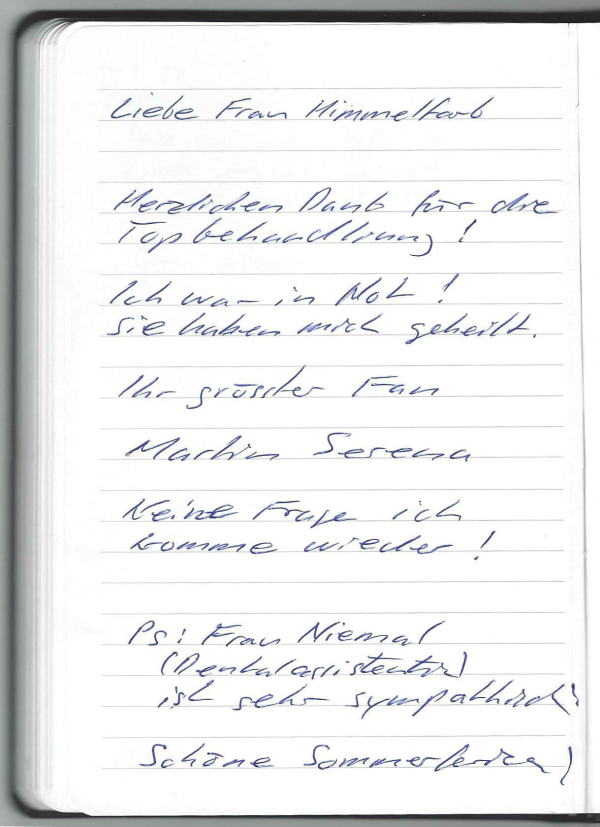 Liebe Frau Himmelfarb
Herzlichen Dank für die
Topbehandlung!
Ich war in Not!
Sie haben mich geheilt.
Ihr grösster Fan
Martin Serena
Keine Frage ich
komme wieder!
Ps: Frau Niemal
(Dentalassistentin)
ist sehr sympathisch!
Schöne Sommerferien!